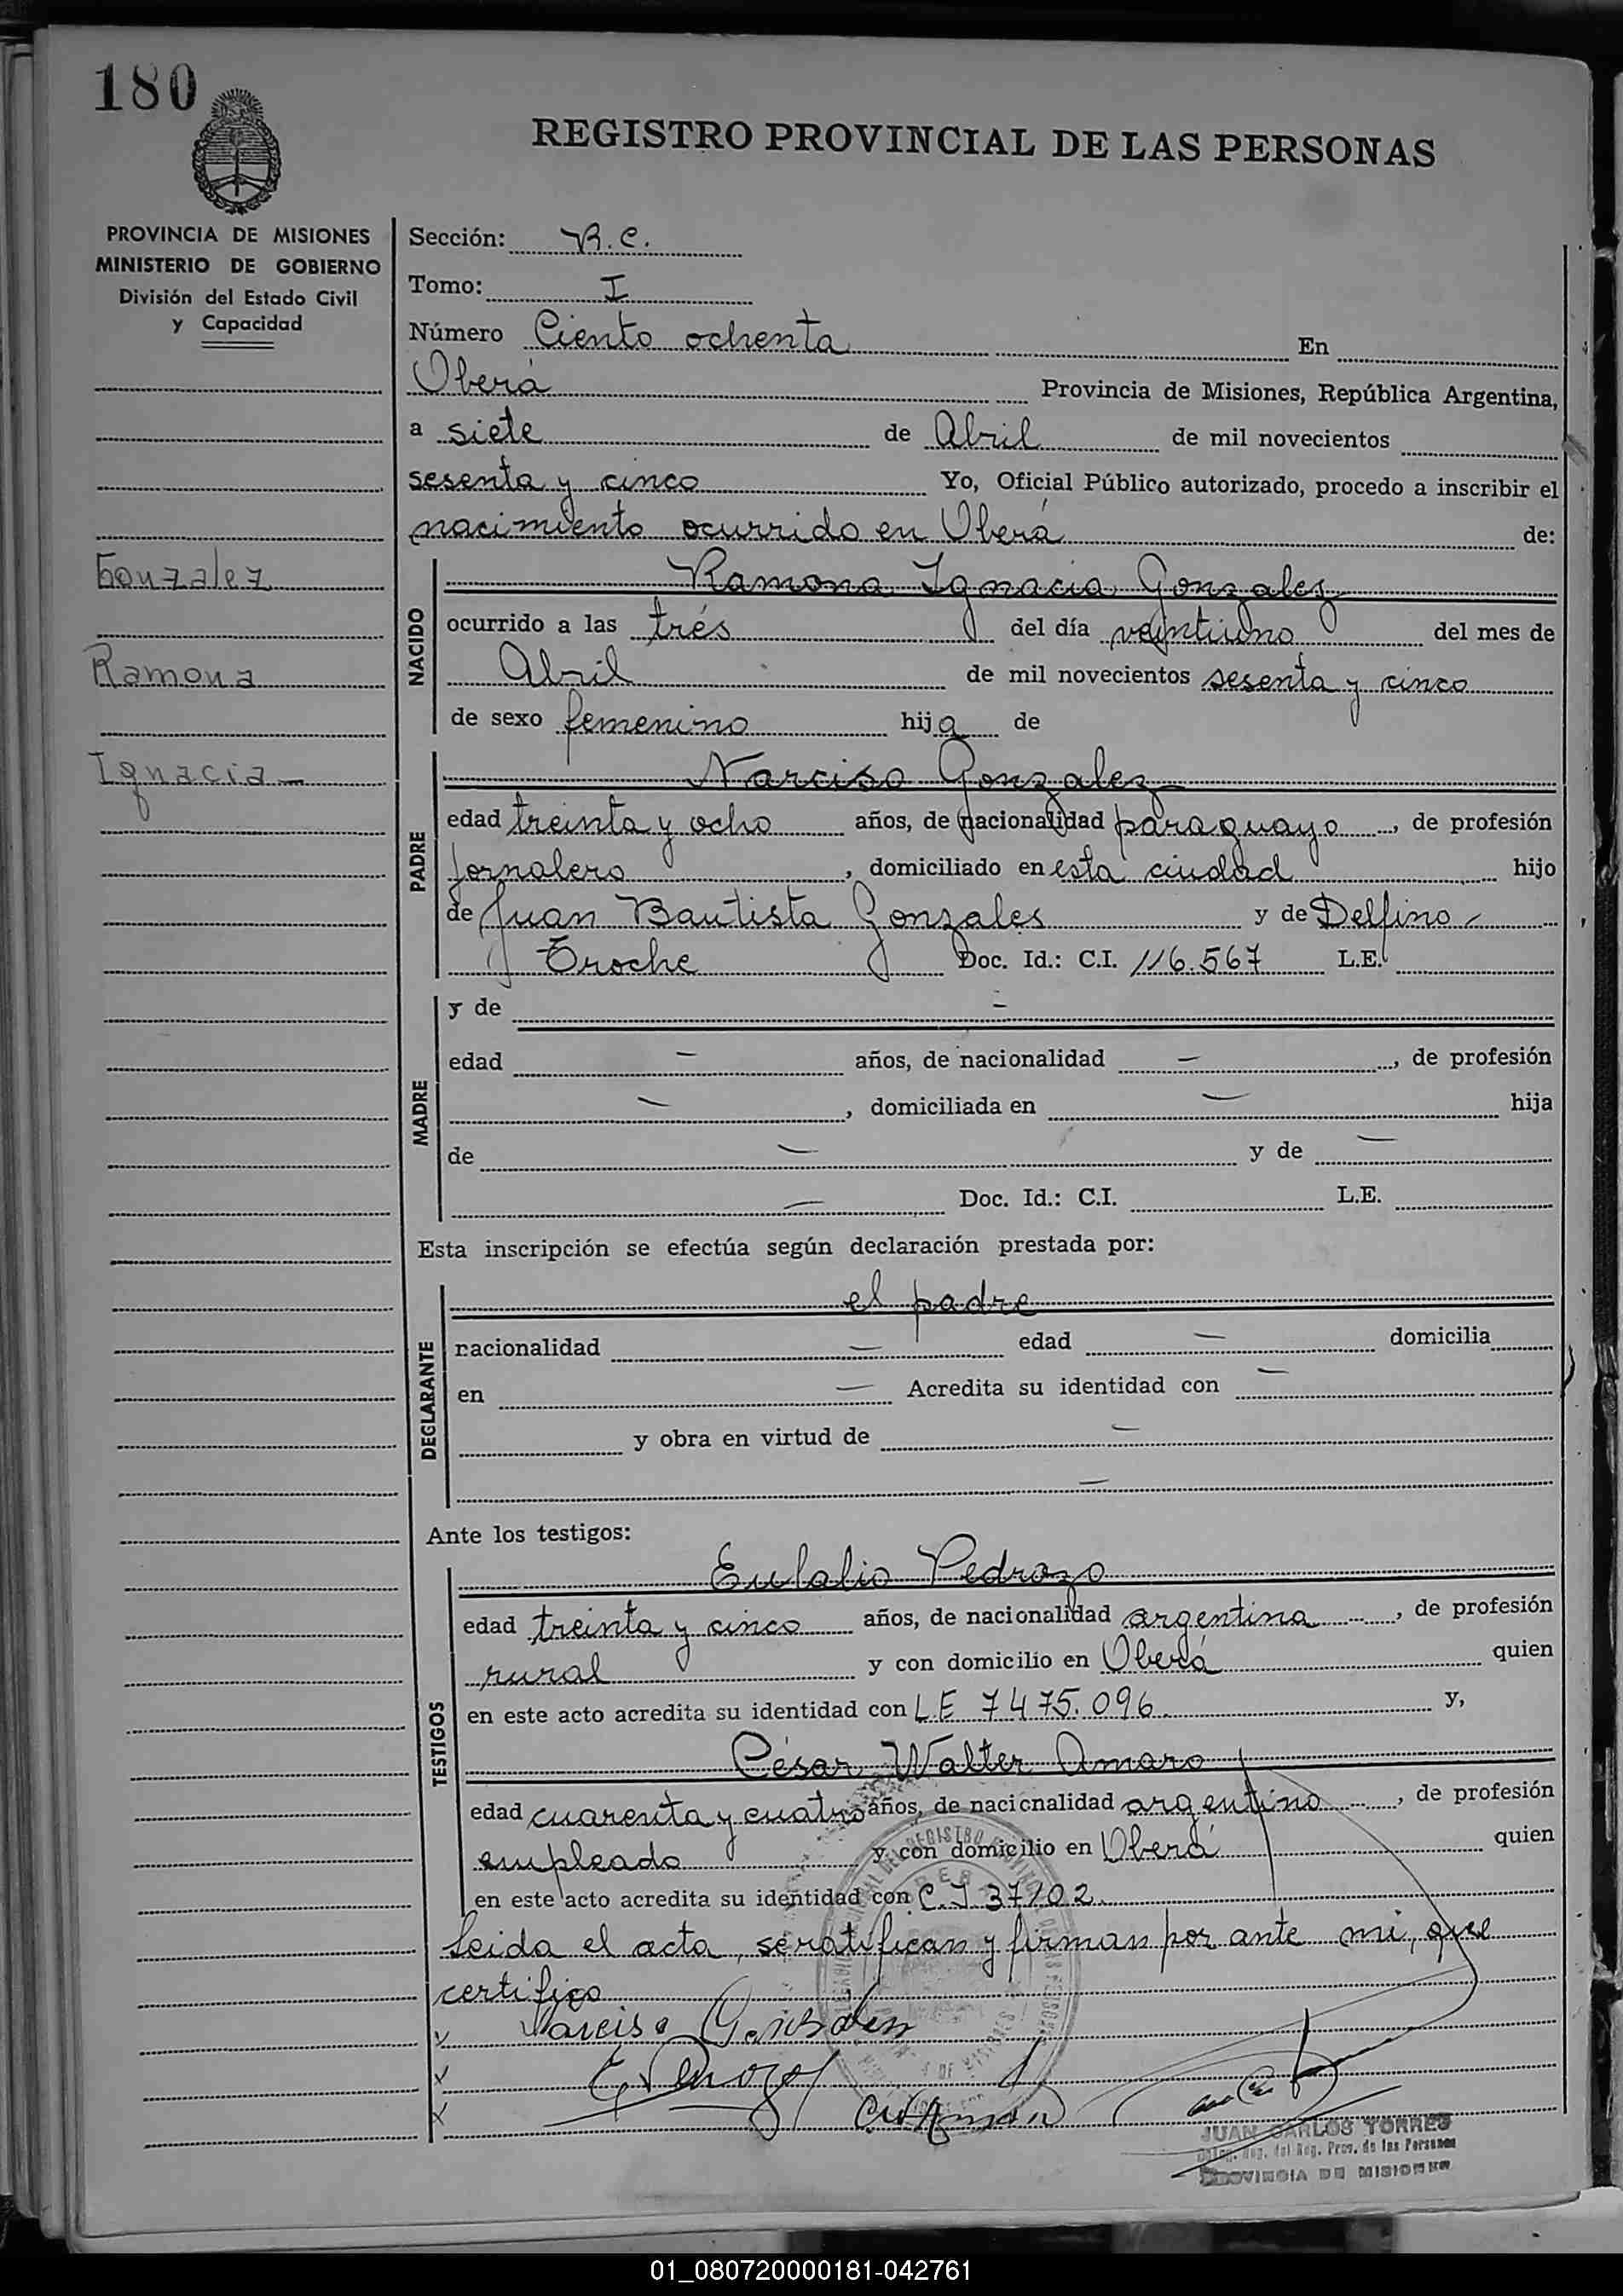 180
REGISTRO PROVINCIAL DE LAS PERSONAS
PROVINCIA DE MISIONES
MINISTERIO DE GOBIERNO
División del Estado Civil
y Capacidad
Gonzalez
Ramona
Ignacia
Sección: R.C.
Tomo: I
Número Ciento ochenta En
Oberá Provincia de Misiones, República Argentina,
a siete de Abril de mil novecientos
sesenta y cinco Yo, Oficial Público autorizado, procedo a inscribir el
nacimiento ocurrido en Oberá de:
NACIDO
Ramona Ignacia Gonzalez
ocurrido a las trés del día veintiuno del mes de
Abril de mil novecientos sesenta y cinco
de sexo femenino hija de
PADRE
Narciso Gonzalez
edad treinta y ocho años, de nacionalidad paraguayo, de profesión
Jornalero, domiciliado en esta ciudad hijo
de Juan Bautista Gonzales y de Delfino
Troche Doc. Id.: C.I. 116.567 L.E.
MADRE
y de –
edad – años, de nacionalidad –, de profesión
–, domiciliada en – hija
de – y de –
– Doc. Id.: C.I. L.E.
Esta inscripción se efectúa según declaración prestada por:
DECLARANTE
el padre
nacionalidad – edad – domicilia
en – Acredita su identidad con –
y obra en virtud de –
–
Ante los testigos:
TESTIGOS
Eulalio Pedrozo
edad treinta y cinco años, de nacionalidad argentina, de profesión
rural y con domicilio en Oberá quien
en este acto acredita su identidad con L.E 7475.096 y,
César Walter Amaro
edad cuarenta y cuatro años, de nacionalidad argentino, de profesión
empleado y con domicilio en Oberá quien
en este acto acredita su identidad con C.I 37102.
Leida el acta, se ratifican y firman por ante mi, que
certifico
Narciso
JUAN CARLOS TORRES
Reg. del Reg. Prov. de las Personas
PROVINCIA DE MISIONES
01_080720000181-042761